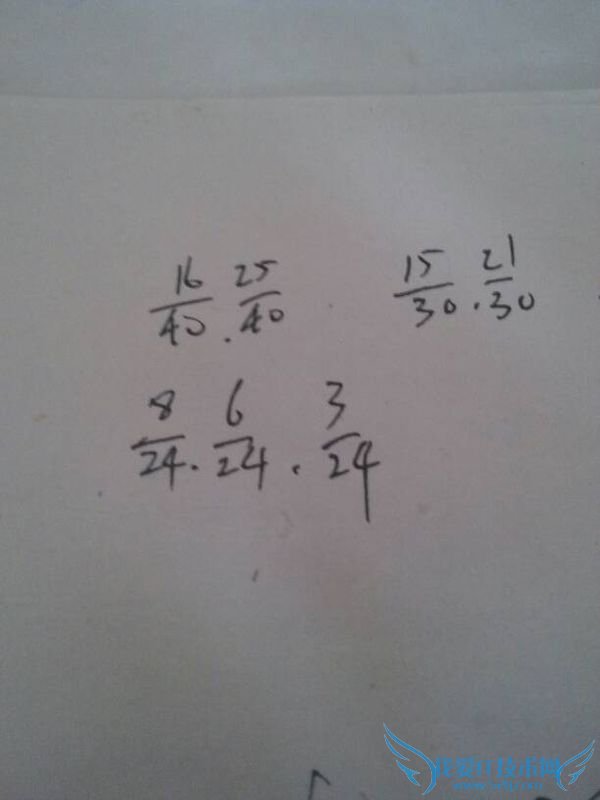 16/40 . 25/40 15/30 . 21/30
8/24 . 6/24 . 3/24